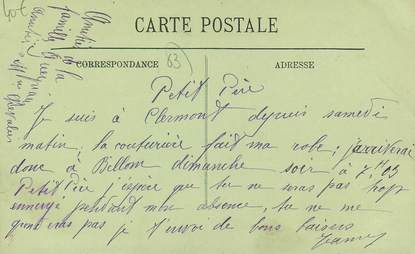 40€
Amitiés à la
famille
Amitiés
Chevalier
CARTE POSTALE
CORRESPONDANCE
63
ADRESSE
Petit Père
Je suis à Clermont depuis samedi
matin, la couturière fait ma robe; j'arriverai
donc à Billom dimanche soir à 7H 03
Petit Père j'espère que tu ne m'as pas trop
ennuyé pendant mon absence, tu ne me
gronderas pas je t'envoi de bons baisers
Jeanne